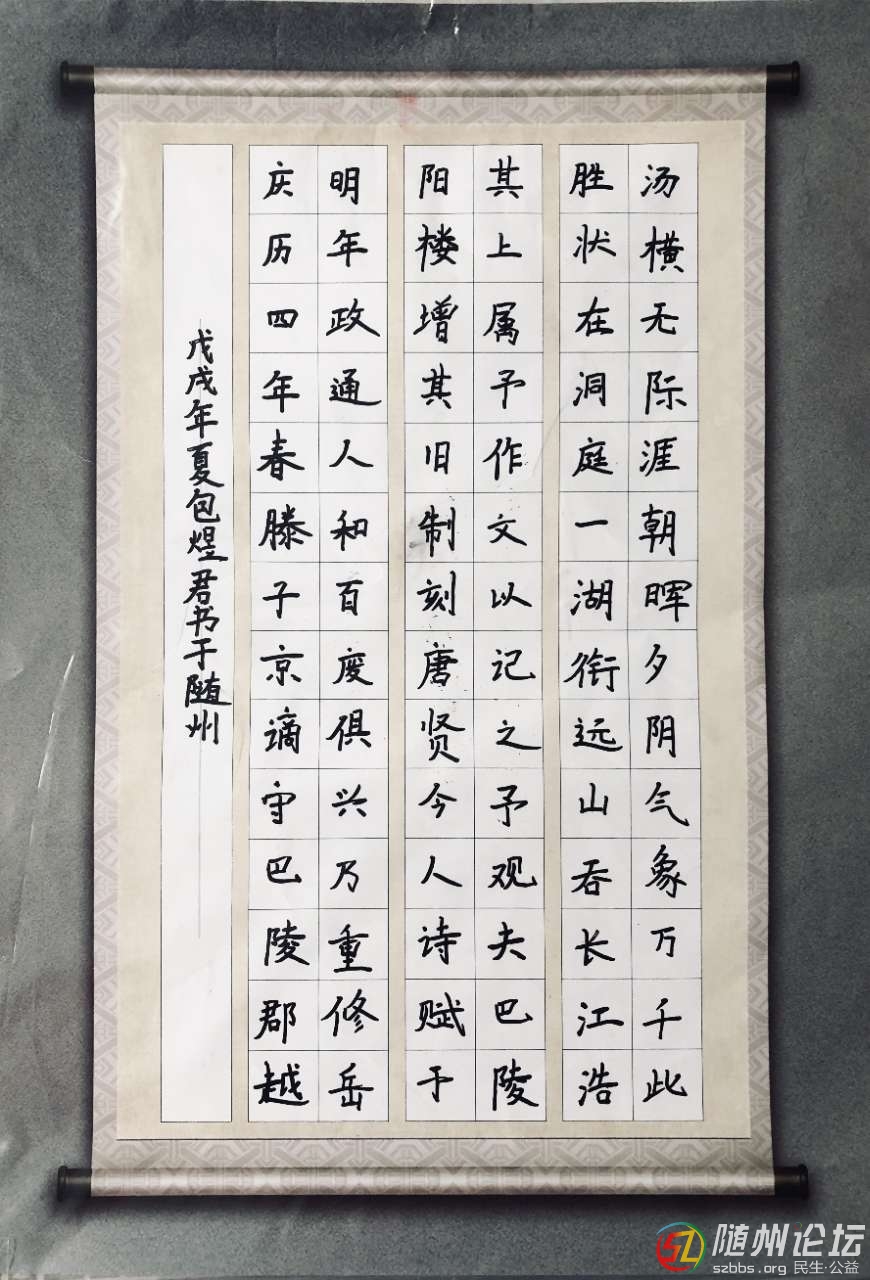 庆历四年春滕子京谪守巴陵郡越
明年政通人和百废俱兴乃重修岳
阳楼增其旧制刻唐贤今人诗赋于
其上属予作文以记之予观夫巴陵
胜状在洞庭一湖衔远山吞长江浩
汤横无际涯朝晖夕阴气象万千此
戊戌年夏包煜君书于随州
随州论坛
szbbs.org 民生·公益